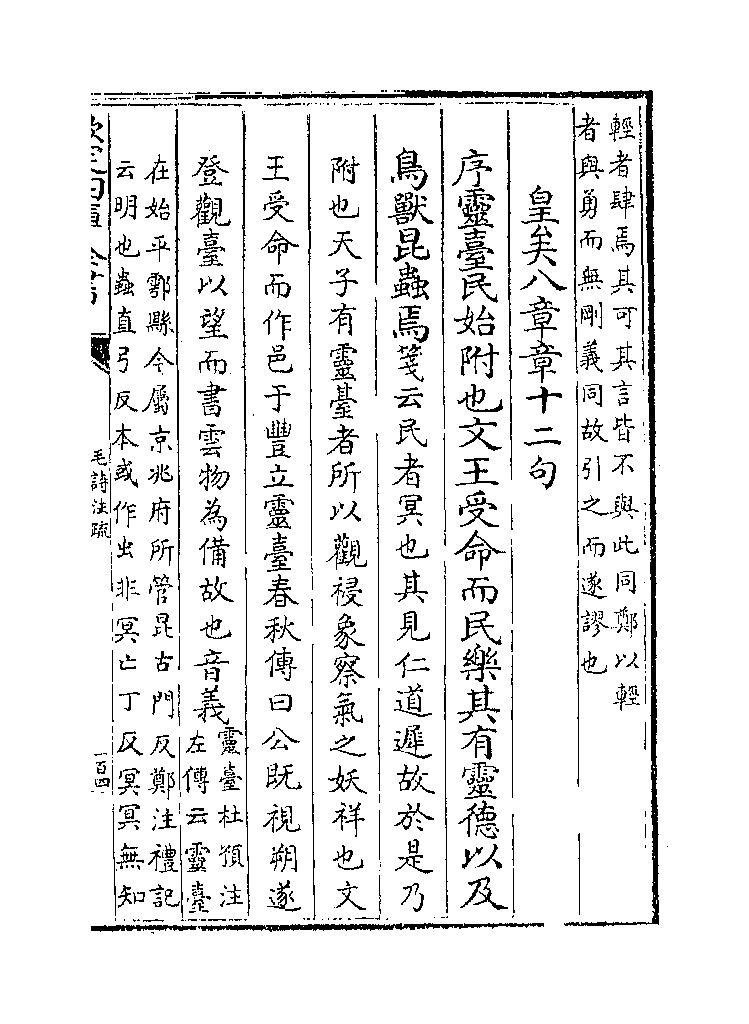 輕者肆焉其可其言皆不與此同鄭以輕
者與勇而無剛義同故引之而遂謬也
皇矣八章章十二句
序靈臺民始附也文王受命而民樂其有靈德以及
鳥獸昆蟲焉箋云民者冥也其見仁道遲故於是乃
附也天子有靈臺者所以觀祲象察氣之妖祥也文
王受命而作邑于豐立靈臺春秋傳曰公既視朔遂
登觀臺以望而書雲物為備故也音義
靈臺杜預注
左傳云靈臺
在始平鄠縣今屬京兆府所管昆古門反鄭注禮記
云明也蟲直弓反本或作虫非冥亡丁反冥冥無知
毛詩注疏
一百四